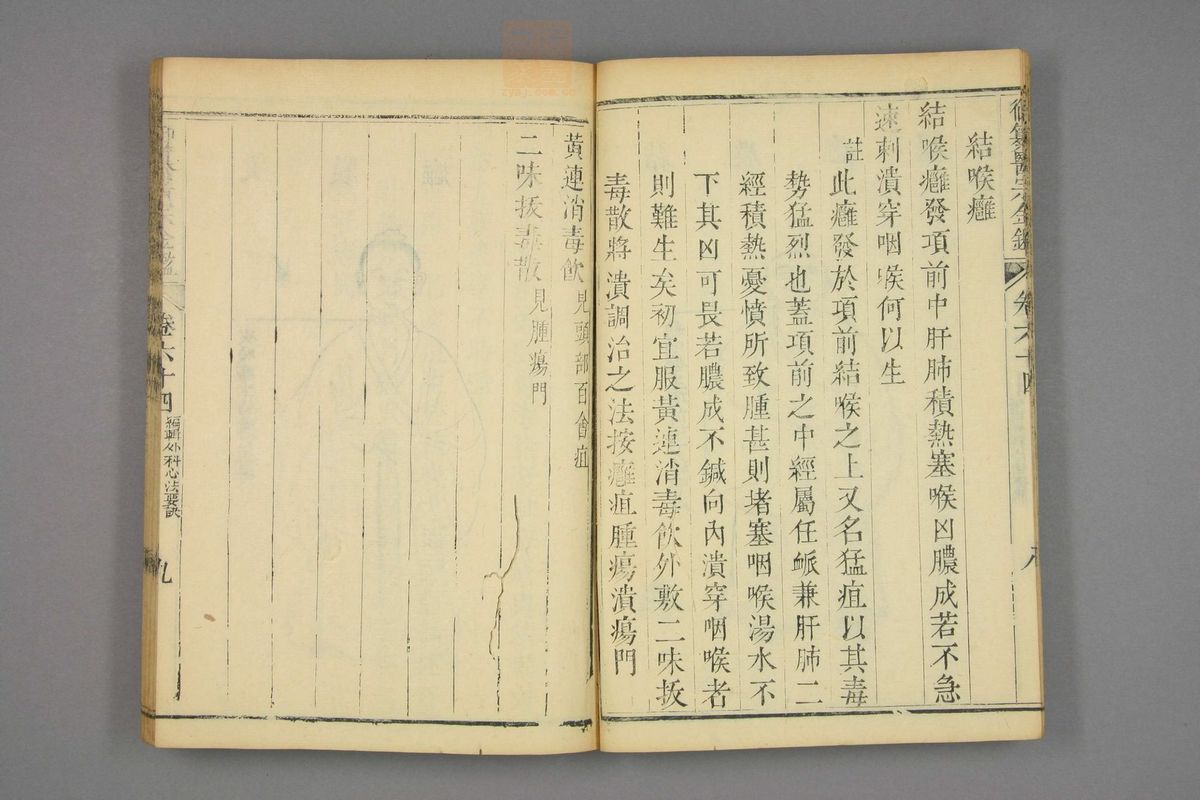 御纂醫宗金鑑 卷六十四 八
結喉癰
結喉癰發項前中肝肺積熱塞喉凶膿成若不急
速刺潰穿咽喉何以生
註此癰發於項前結喉之上又名猛疽以其毒
勢猛烈也蓋項前之中經屬任衇兼肝肺二
經積熱憂憤所致腫甚則堵塞咽喉湯水不
下其凶可畏若膿成不鍼向內潰穿咽喉者
則難生矣初宜服黃連消毒飲外敷二味拔
毒散將潰調治之法按癰疽腫瘍潰瘍門
黃連消毒飲見頭部百會疽
二味拔毒散見腫瘍門
卷六十四 編輯外科心法要訣 九